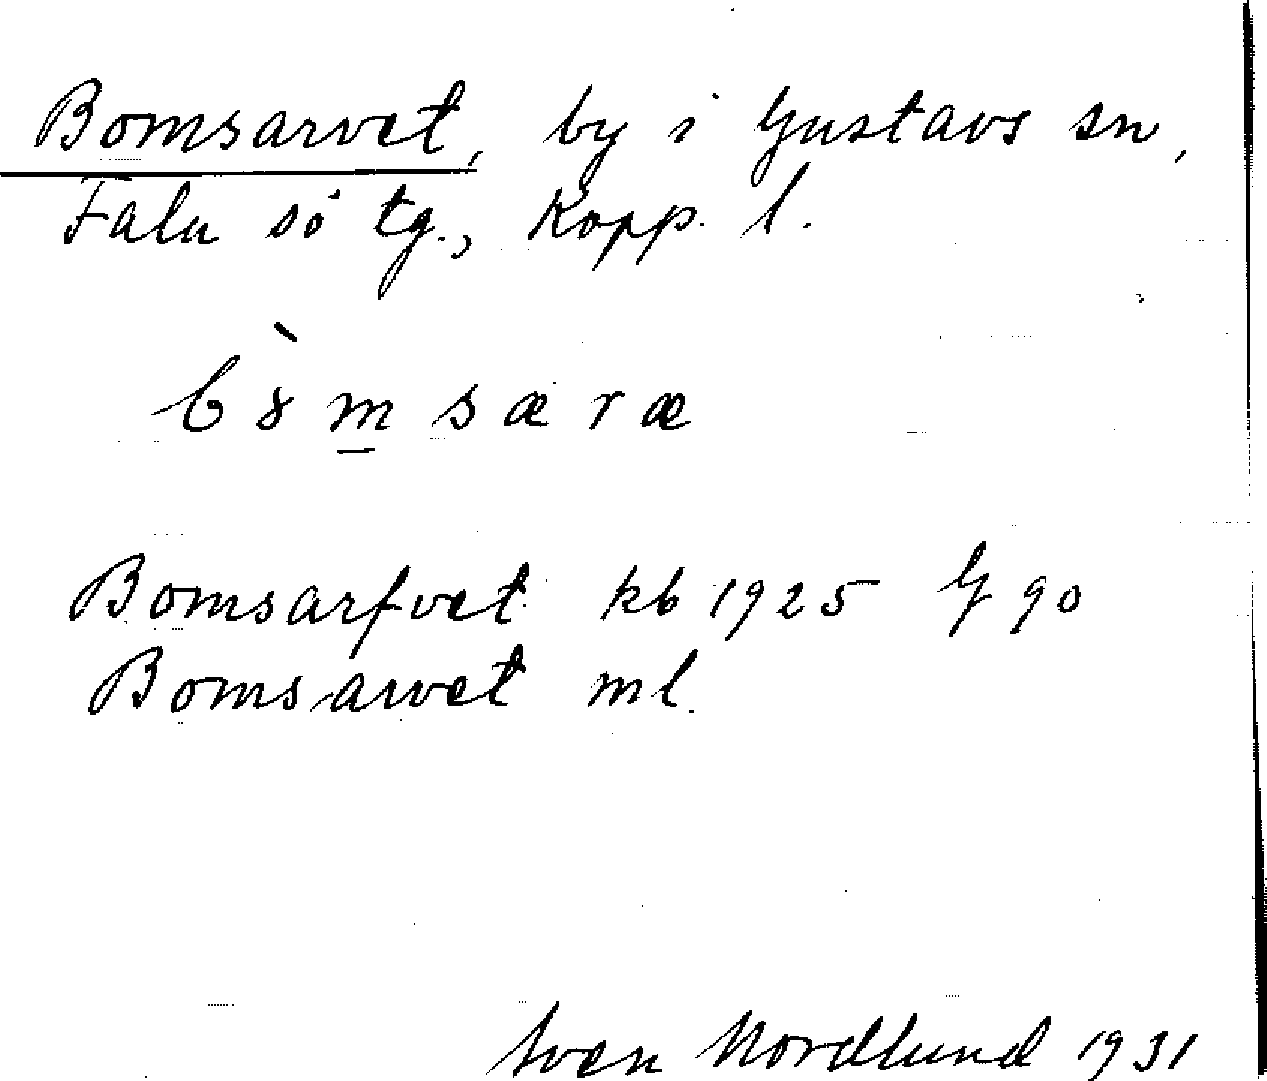 Bomsarvet, by i Gustavs sn,
Falu sö tg., Kopp. l.
bȣ̀m̲særæ
Bomsarfvet kb 1925 G 90
Bomsarvet ml.
Sven Nordlund 1931